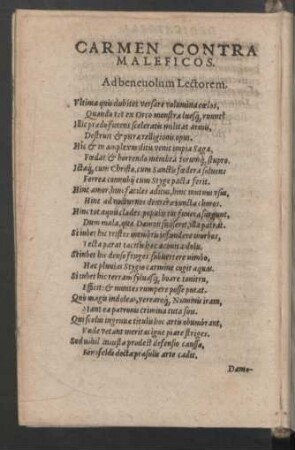 CARMEN CONTRA
MALEFICOS.
Ad beneuolum Lectorem.
Vltima quis dubitet versare volumina cœlos,
Quando tot ex Orco monstra luesq́; ruunt?
Hic prædo furens sceleratis militat armis,
Destruit & puræ relligionis opus.
Hic & in amplexus ditis venit impia saga,
Fœdat & horrendo membra torumq́; stupro.
Ictaq́; cum Christo, cum Sanctis fœdera soluens
Ferrea connubij cum Styge pacta ferit.
Hinc amor, hinc faciles aditus, hinc mutuus vsus,
Hinc ad nocturnos dextera iuncta choros.
Hinc tot atroci clades populis tot funera surgunt,
Dum mala, quæ Dæmon suaserit, illa patrat.
Scimbet hic tristes membris infundere morbos,
Tecta parat tacitis hæc aconita dolis.
Scimbet hic densè fruges subuertere nimbo,
Hæc pluuias Stygio carmine cogit aquas.
Scimbet hic terram syluasq́; boare tonitru,
Efficit: & montes rumpere posse putat.
Quò magis indoleas, vereareq́; Numinis iram,
Stant ea patronis crimina tuta suis.
Qui scelus ingenuæ titulis hoc artis obumbrant,
Vnde vetant meritas igne piare striges.
Sed nihil iniustæ prodest defensio caussæ,
Binsfeldi docta præsulis arte cadit.
Dæmo-